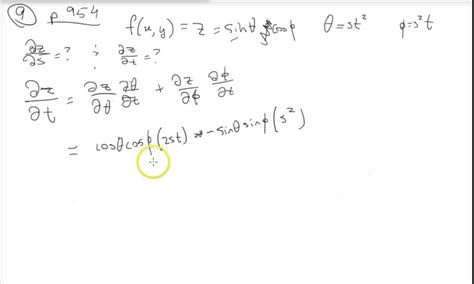 9 p 954 f(x, y) = z = sinθ cosφ θ = st² φ = s²t
∂z/∂s = ? ; ∂z/∂t = ?
∂z/∂t = ∂z/∂θ ∂θ/∂t + ∂z/∂φ ∂φ/∂t
= cosθ cosφ (2st) - sinθ sinφ (s²)